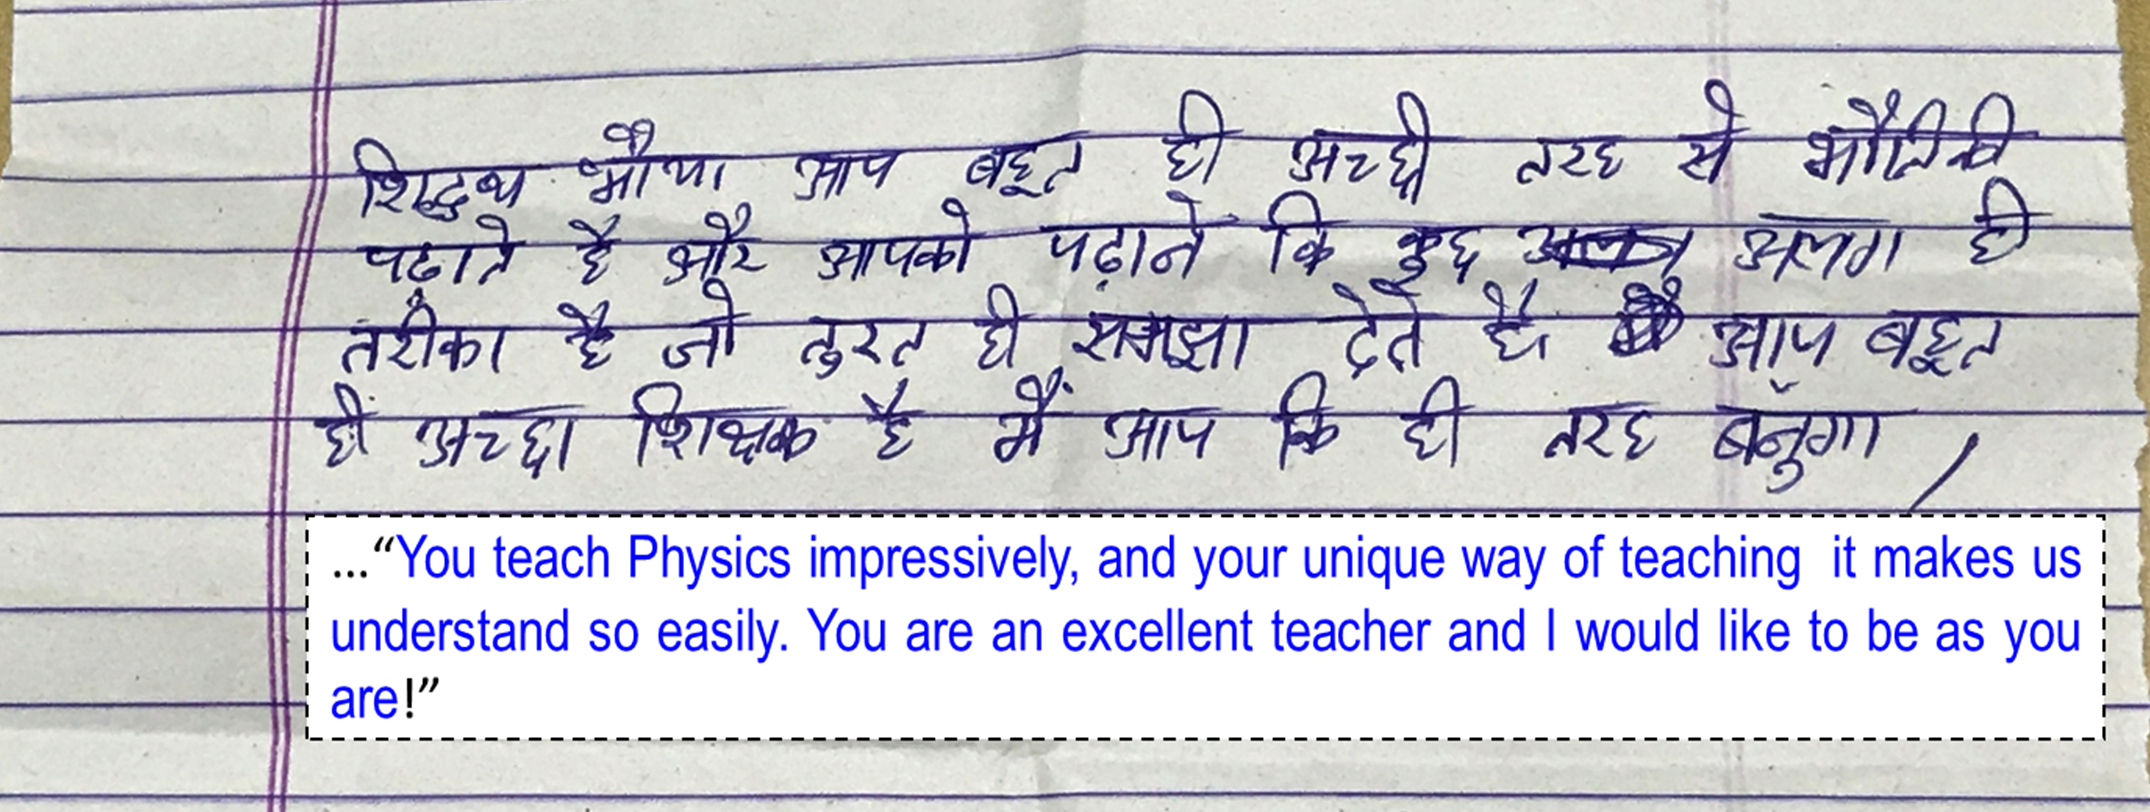 शिद्धथ भौया आप बहूत ही अच्छी तरह से भौतिकी
पढ़ाते है और आपको पढ़ाने कि कुछ अलग ही
तरीका है जो तुरत ही समझा देते है आप बहूत
ही अच्छा शिक्षक है मैं आप कि ही तरह बनुँगा /
...“You teach Physics impressively, and your unique way of teaching it makes us
understand so easily. You are an excellent teacher and I would like to be as you
are!”